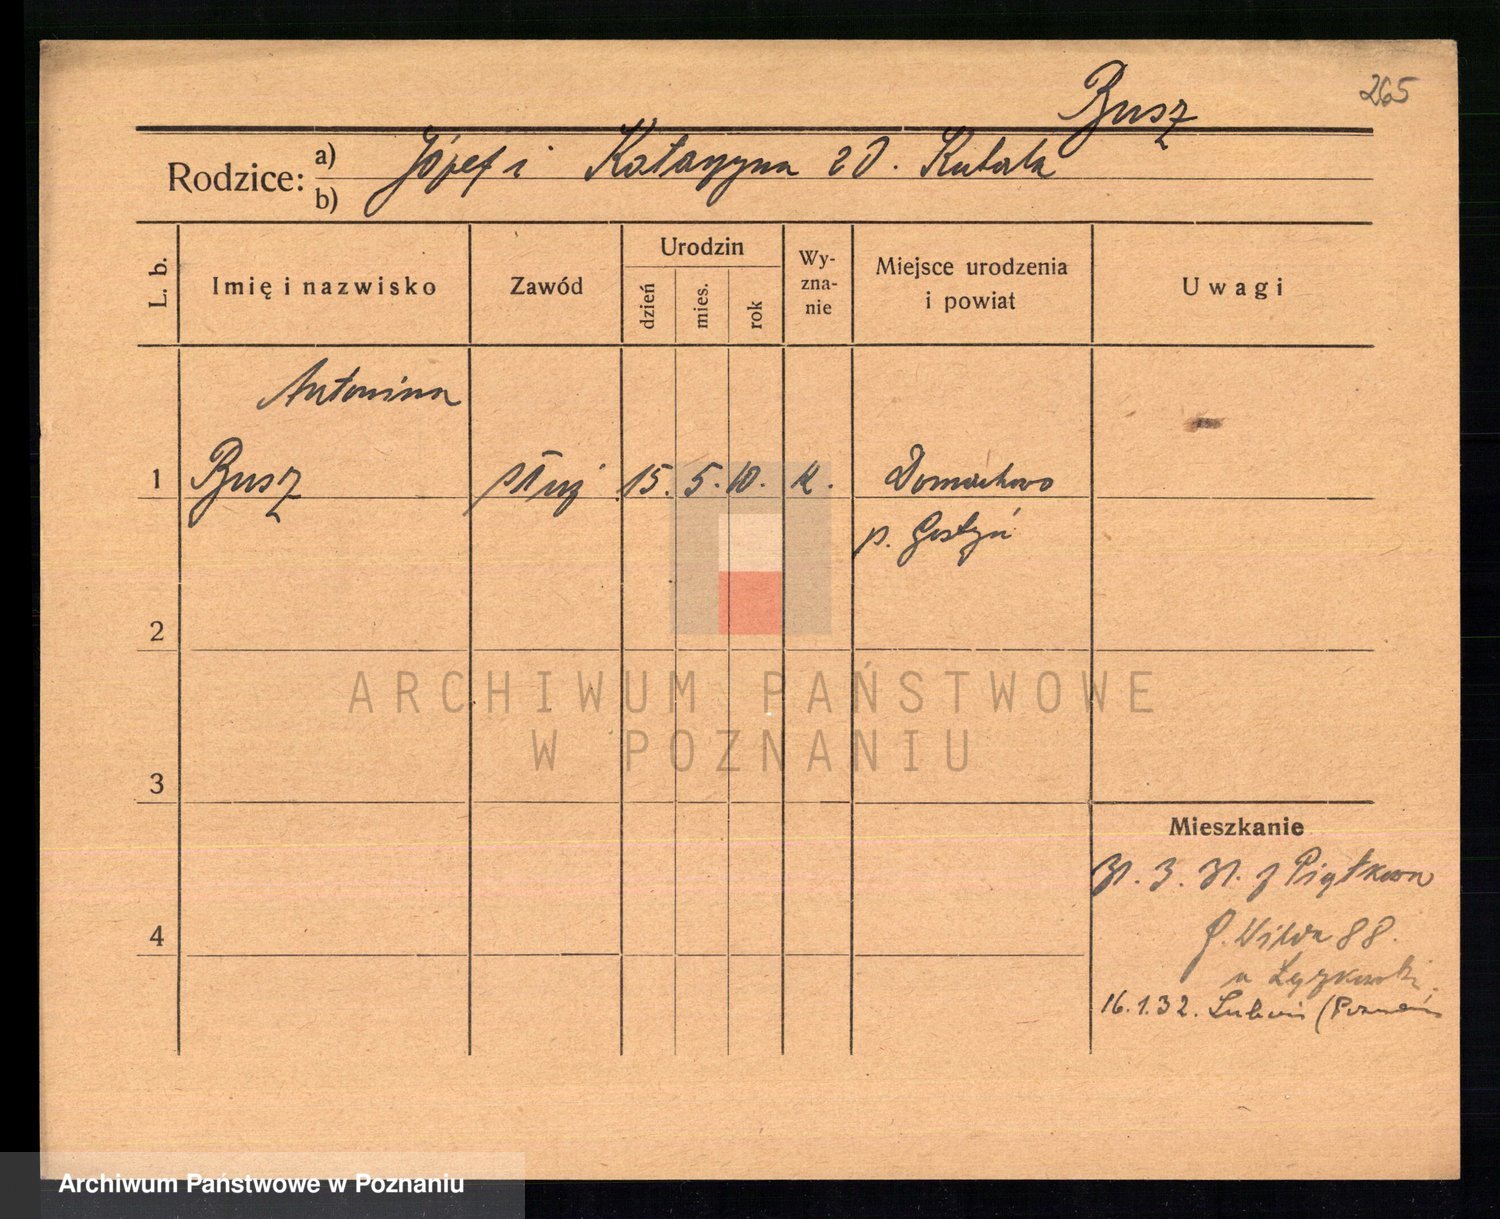 265
Busz
Rodzice: a) Józef i Katarzyna zd. Kubala
b)
L. b. Imię i nazwisko Zawód Urodzin dzień mies. rok Wy-zna-nie Miejsce urodzenia i powiat Uwagi
Antonina
1 Busz służ 15. 5. 10. k. Domachowo
p. Gostyń
2
ARCHIWUM PAŃSTWOWE
W POZNANIU
3
Mieszkanie
3. z Piątkowa
4
G. Wilda 88.
u
16.1.32. Luboń (Poznań
Archiwum Państwowe w Poznaniu